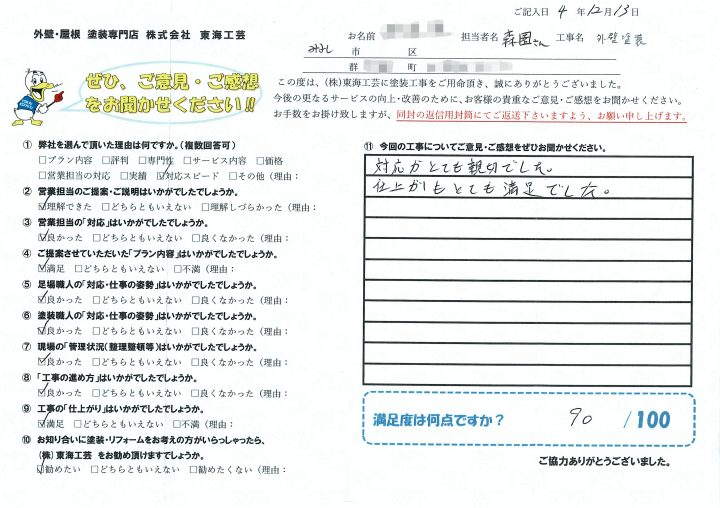 ご記入日 4 年 12月 13日
外壁・屋根 塗装専門店 株式会社 東海工芸
お名前 担当者名 森園さん 工事名 外壁塗装
みよし 市 区
群 町
ぜひ、ご意見・ご感想
をお聞かせください!!
この度は、(株)東海工芸に塗装工事をご用命頂き、誠にありがとうございました。
今後の更なるサービスの向上・改善のために、お客様の貴重なご意見・ご感想をお聞かせください。
お手数をお掛け致しますが、同封の返信用封筒にてご返送下さいますよう、お願い申し上げます。
① 弊社を選んで頂いた理由は何ですか。(複数回答可)
□プラン内容 □評判 □専門性 □サービス内容 □価格
□営業担当の対応 □実績 ☑対応スピード □その他(理由:
② 営業担当のご提案・ご説明はいかがでしたでしょうか。
☑理解できた □どちらともいえない □理解しづらかった(理由:
③ 営業担当の「対応」はいかがでしたでしょうか。
☑良かった □どちらともいえない □良くなかった(理由:
④ ご提案させていただいた「プラン内容」はいかがでしたでしょうか。
☑満足 □どちらともいえない □不満(理由:
⑤ 足場職人の「対応・仕事の姿勢」はいかがでしたでしょうか。
☑良かった □どちらともいえない □良くなかった(理由:
⑥ 塗装職人の「対応・仕事の姿勢」はいかがでしたでしょうか。
☑良かった □どちらともいえない □良くなかった(理由:
⑦ 現場の「管理状況(整理整頓等)はいかがでしたでしょうか。
☑良かった □どちらともいえない □良くなかった(理由:
⑧ 「工事の進め方」はいかがでしたでしょうか。
☑良かった □どちらともいえない □良くなかった(理由:
⑨ 工事の「仕上がり」はいかがでしたでしょうか。
☑満足 □どちらともいえない □不満(理由:
⑩ お知り合いに塗装・リフォームをお考えの方がいらっしゃったら、
(株)東海工芸 をお勧め頂けますでしょうか。
☑勧めたい □どちらともいえない □勧めたくない(理由:
⑪ 今回の工事についてご意見・ご感想をぜひお聞かせください。
対応がとても親切でした。
仕上がりもとても満足でした。
満足度は何点ですか? 90 /100
ご協力ありがとうございました。